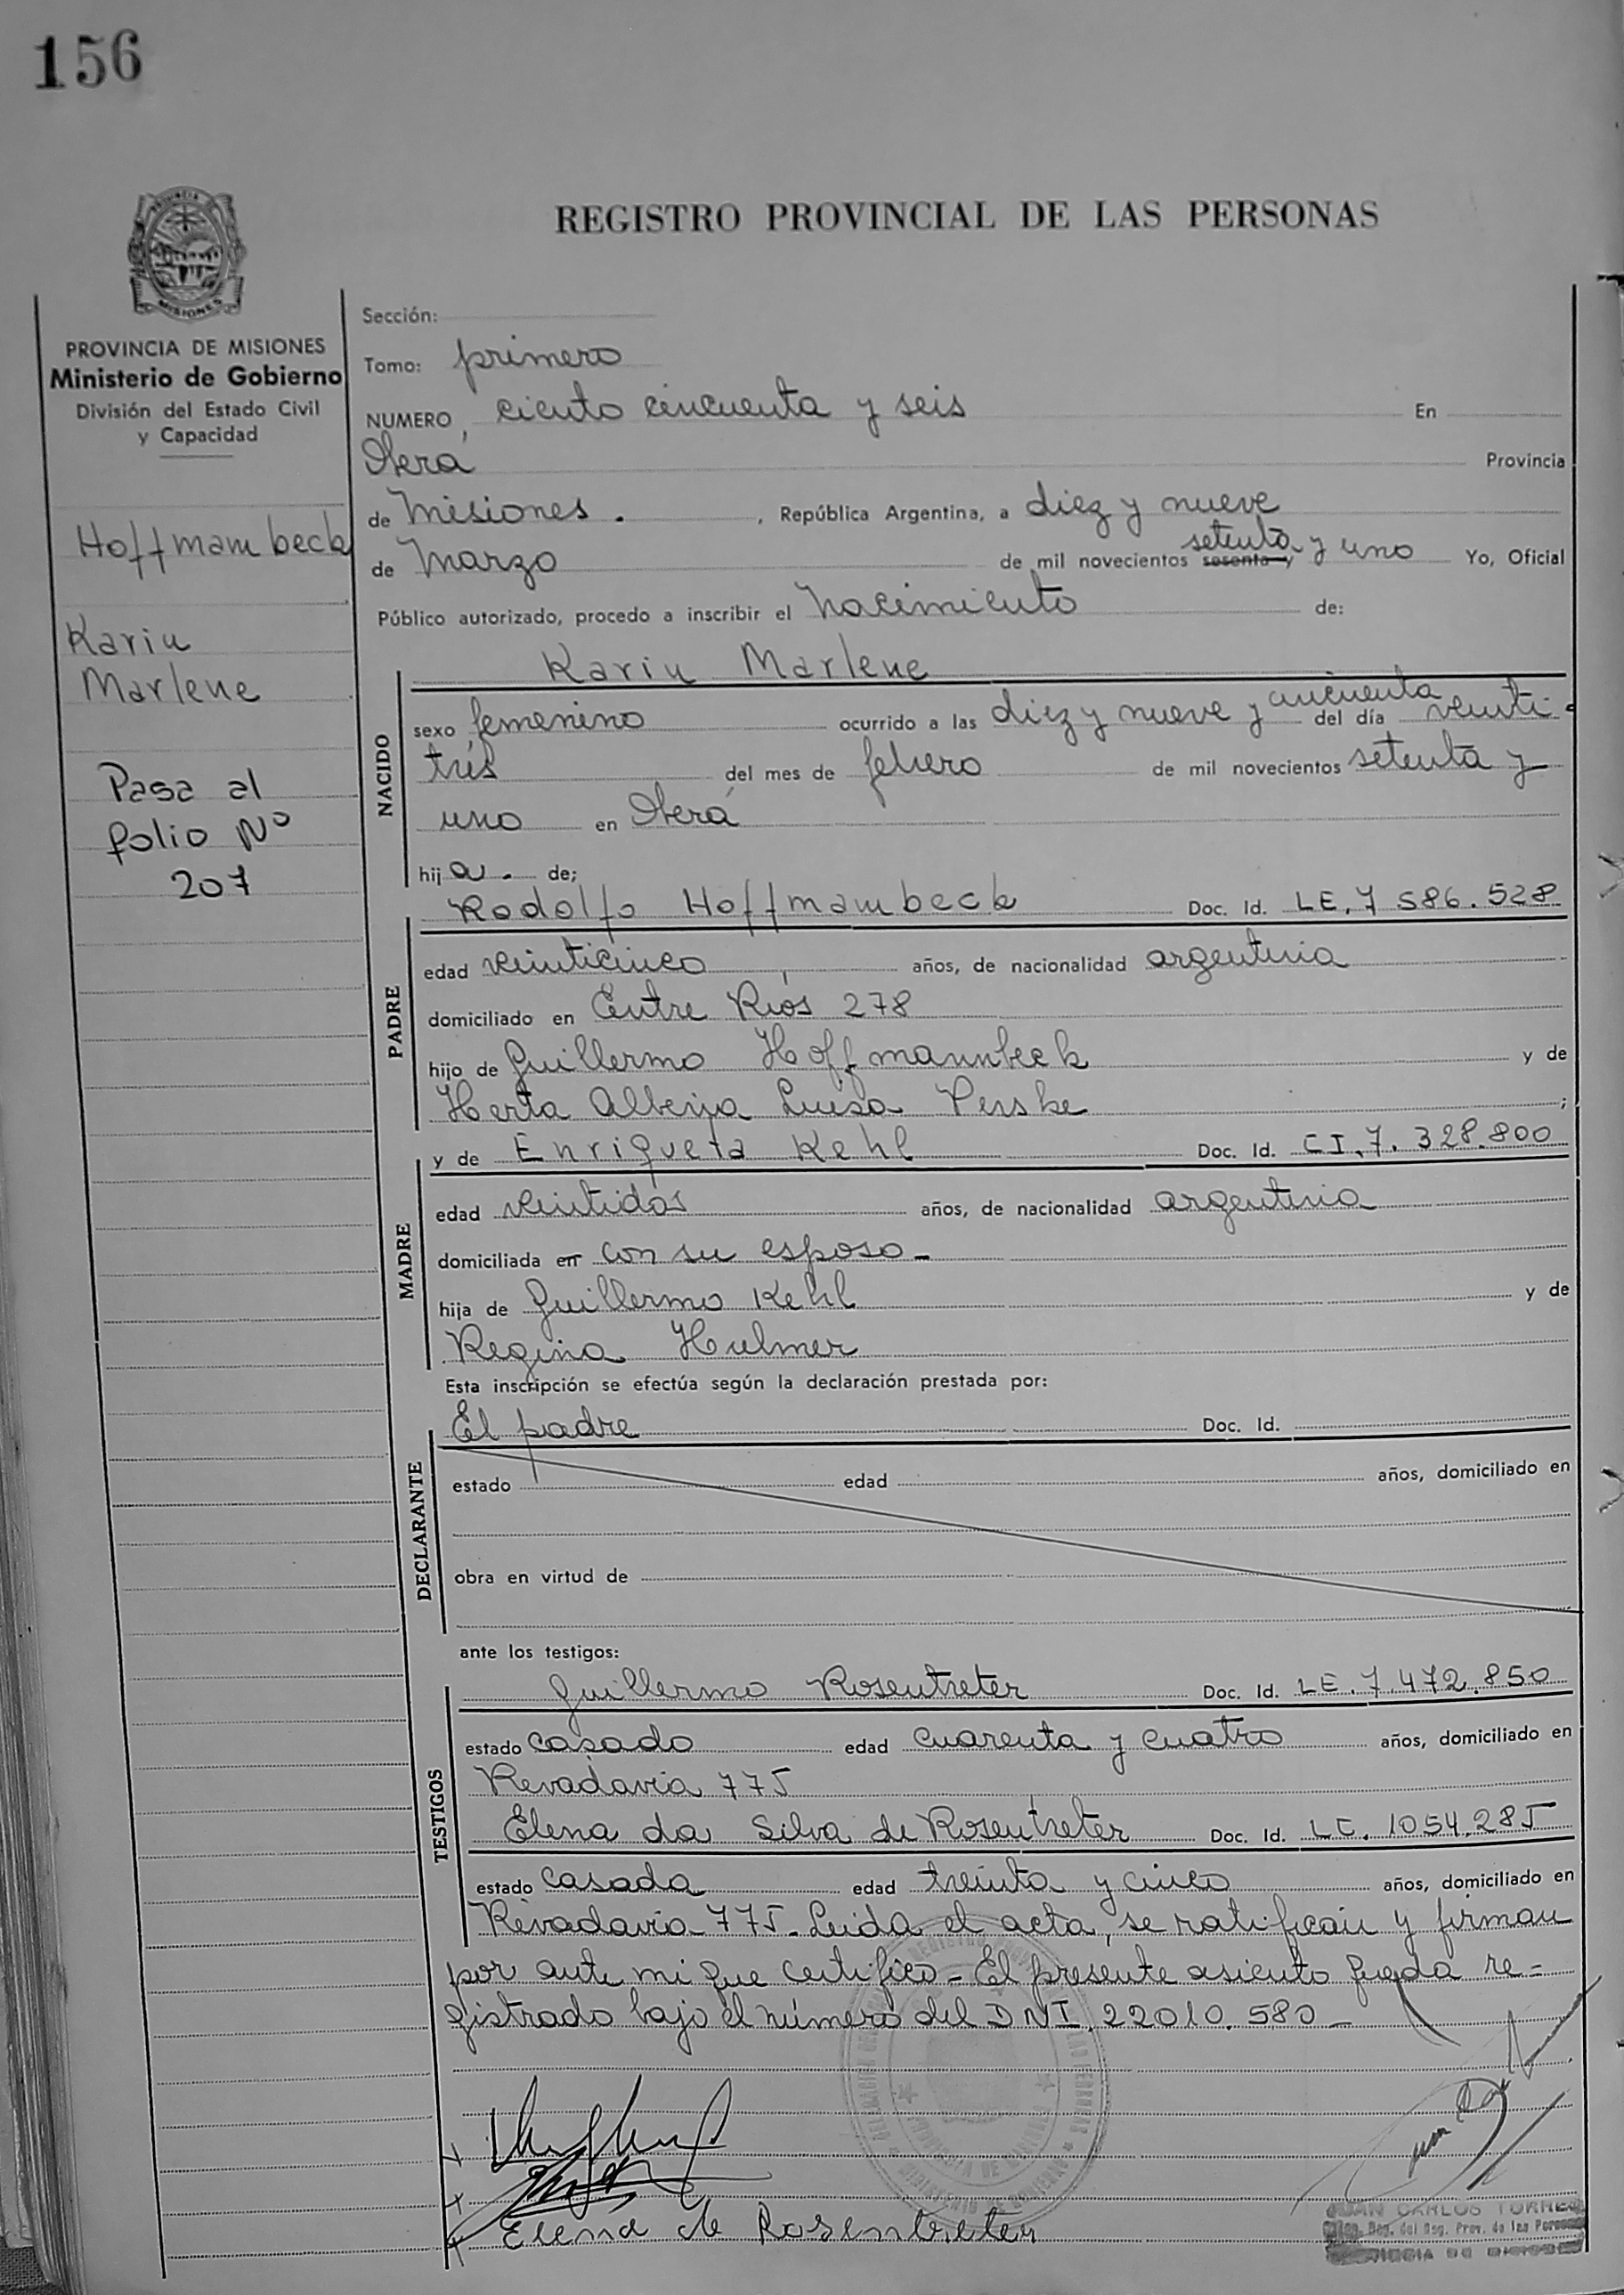 156
REGISTRO PROVINCIAL DE LAS PERSONAS
MISIONES
PROVINCIA DE MISIONES
Ministerio de Gobierno
División del Estado Civil
y Capacidad
Hoffmambeck
Karin
Marlene
Pasa al
folio Nº
207
Sección:
Tomo: primero
NUMERO, ciento cincuenta y seis En
Oberá Provincia
de Misiones. , República Argentina, a diez y nueve
de Marzo de mil novecientos sesenta y setenta y uno Yo, Oficial
Público autorizado, procedo a inscribir el nacimiento de:
NACIDO
Karin Marlene
sexo femenino ocurrido a las diez y nueve y cincuenta del día veinti-
trés del mes de febrero de mil novecientos setenta y
uno en Oberá
hija. de;
PADRE
Rodolfo Hoffmambeck Doc. Id. LE. 7 586.528
edad veinticinco años, de nacionalidad argentina
domiciliado en Entre Ríos 278
hijo de Guillermo Hoffmannbeck y de
Herta Luisa ;
MADRE
y de Enriqueta Kehl Doc. Id. CI. 7. 328.800
edad veintidos años, de nacionalidad argentina
domiciliada en con su esposo-
hija de Guillermo Kehl y de
Regina Hulmer
Esta inscripción se efectúa según la declaración prestada por:
DECLARANTE
El padre Doc. Id.
estado edad años, domiciliado en
obra en virtud de
ante los testigos:
TESTIGOS
Guillermo Rosentreter Doc. Id. LE. 7.472.850
estado casado edad cuarenta y cuatro años, domiciliado en
Rivadavia 775
Elena da Silva de Rosentreter Doc. Id. LC. 1054.285
estado casada edad treinta y cinco años, domiciliado en
Rivadavia 775- Leida el acta, se ratifican y firman
por ante mi que certifico - El presente asiento queda re=
gistrado bajo el número del DNI. 22010.580-
Elena de Rosentreter
JUAN CARLOS TORRES